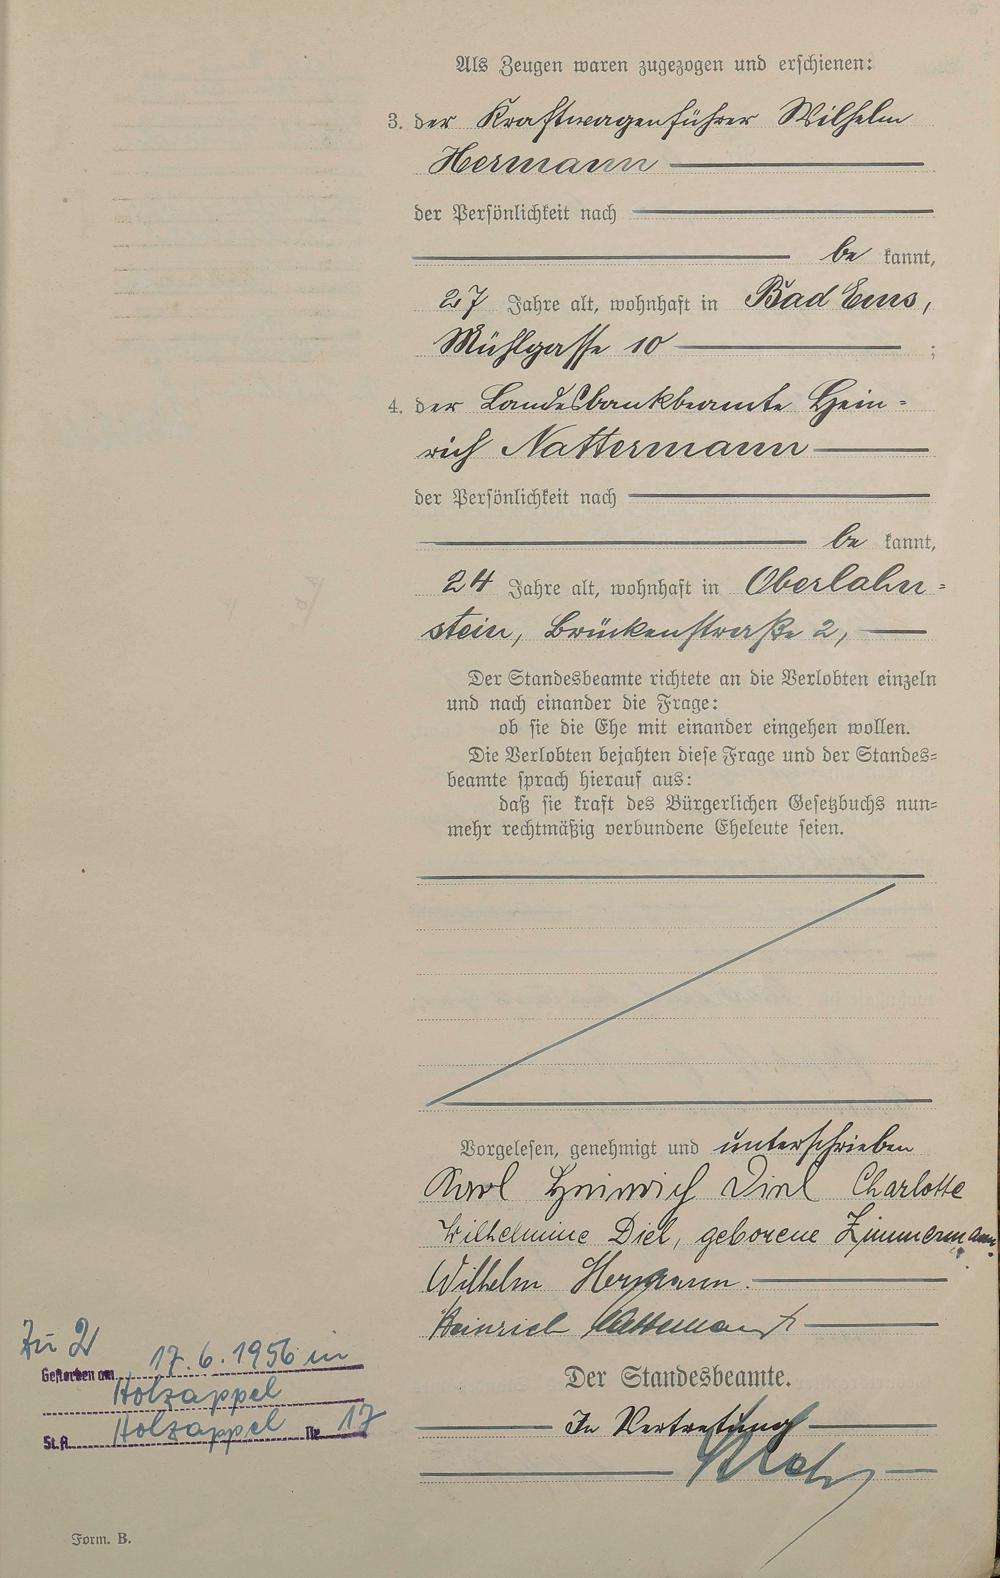 Als Zeugen waren zugezogen und erschienen:
3. der Kraftwagenführer Wilhelm
Hermann
der Persönlichkeit nach
be kannt,
27 Jahre alt, wohnhaft in Bad Ems,
Mühlgasse 10 ;
4. der Landesbankbeamte Hein-
rich Nattermann
der Persönlichkeit nach
be kannt,
24 Jahre alt, wohnhaft in Oberlahn-
stein, Brückenstraße 2,
Der Standesbeamte richtete an die Verlobten einzeln
und nach einander die Frage:
ob sie die Ehe mit einander eingehen wollen.
Die Verlobten bejahten diese Frage und der Standes-
beamte sprach hierauf aus:
daß sie kraft des Bürgerlichen Gesetzbuchs nun-
mehr rechtmäßig verbundene Eheleute seien.
Vorgelesen, genehmigt und unterschrieben
Karl Heinrich Diel Charlotte
Wilhelmine Diel, geborene Zimmermann.
Wilhelm Hermann.
Heinrich Nattermann
Der Standesbeamte.
In Vertretung
Zu 2
Gestorben am 17.6.1956 in
Holzappel
St.A. Holzappel Nr. 17
Form. B.